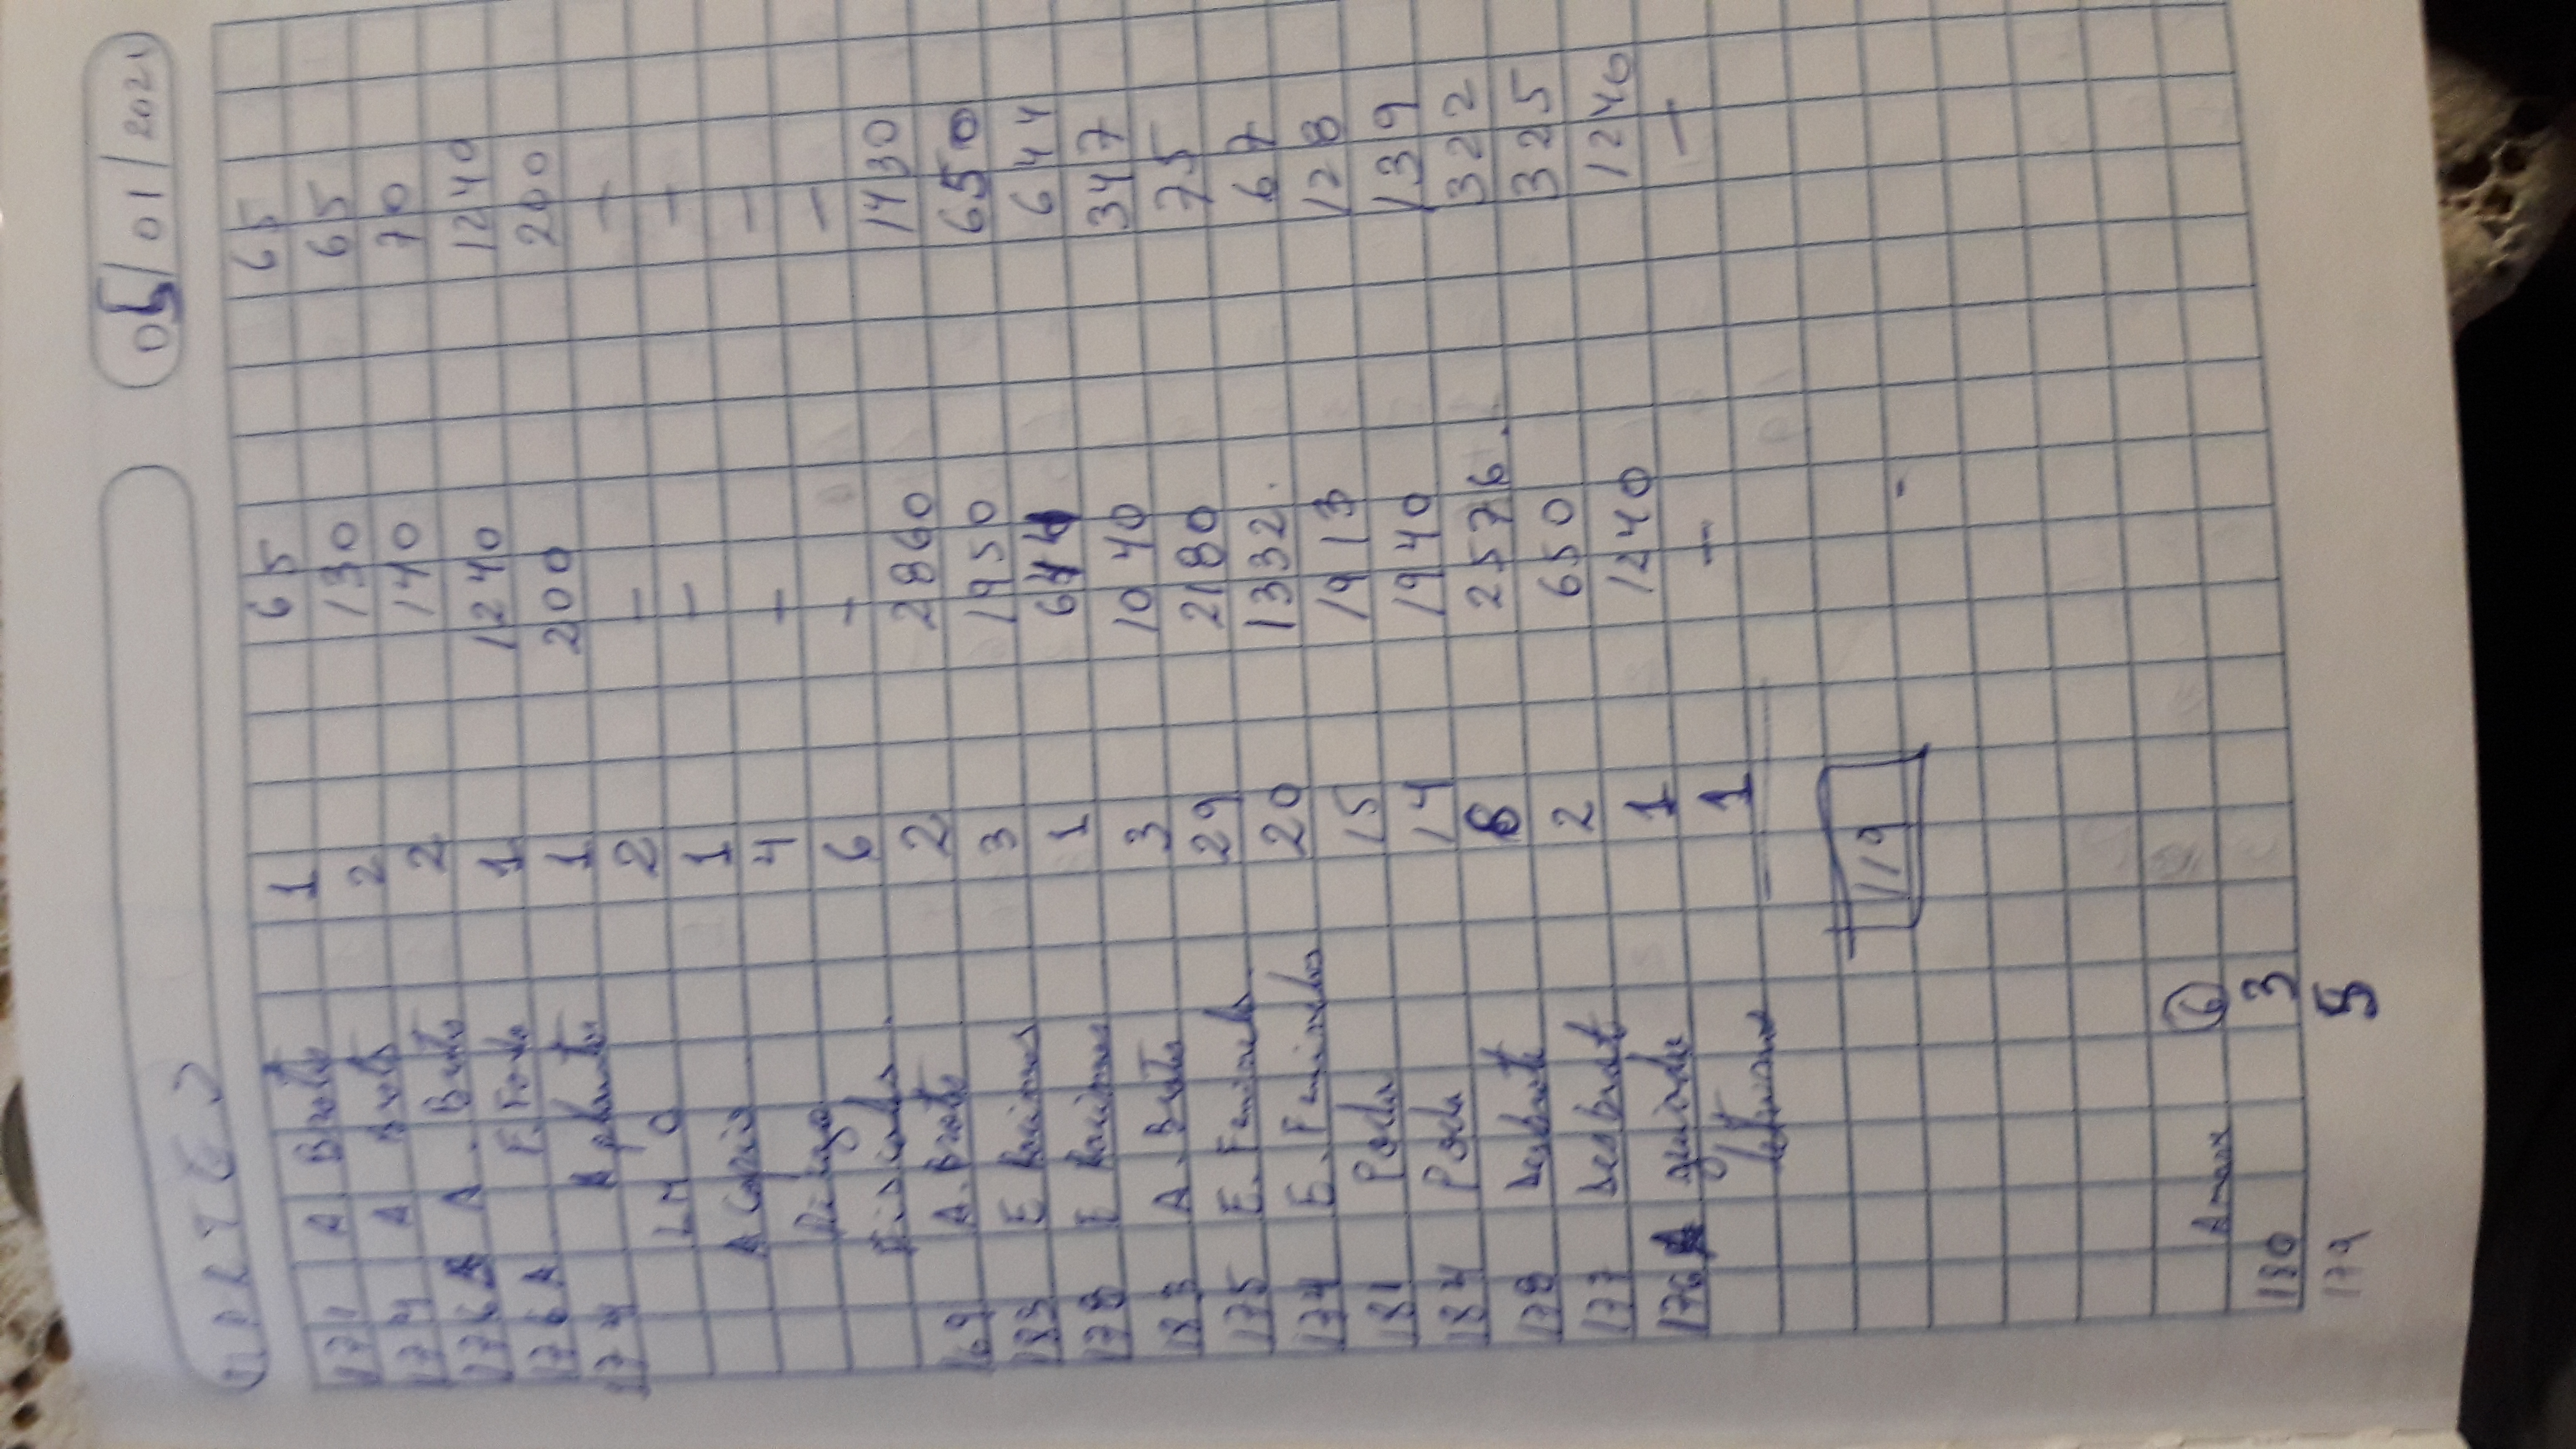 MARTES 05/01/2021
171 A Brote 1 65 65
174 A Brote 2 130 65
176 A . Brote 2 140 70
176A 1 1240 1240
174 A plantas 1 200 200
LM 2 - -
A Copio 1 - -
Riego 4 - -
6 - -
169 A. Brote 2 2860 1430
183 E Racimos 3 1950 650
178 E Racimos 1 644 644
183 A. Brote 3 1040 347
175 E. Feminelas 29 2180 75
174 E. Feminelas 20 1332 67
181 Poda 15 1913 128
184 Poda 14 1940 139
178 Desbrote 8 2576 322
177 Desbrot 2 650 325
176 guiado 1 1240 1240
1 - -
119
6
180 3
179 5